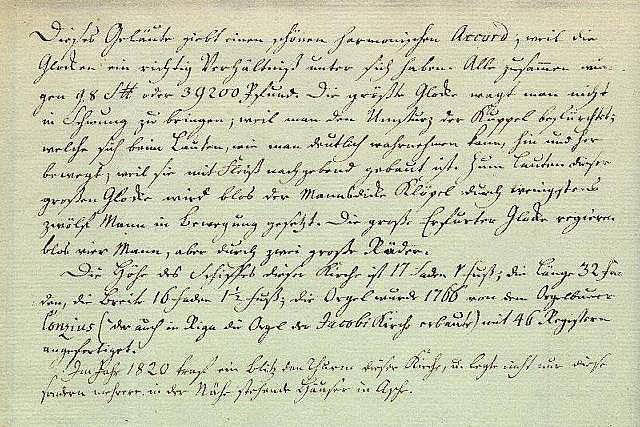 Dieses Geläute giebt einen schönen harmonischen Accord, weil die
Glocken ein richtig Verhältniß unter sich haben. Alle zusammen wie-
gen 98 Stt oder 39200 Pfund. Die größte Glocke wagt man nicht
in Schwung zu bringen, weil man den Umsturz der Kuppel befürchtet;
welche sich beim Läuten, wie man deutlich wahrnehmen kann, hin und her
bewegt, weil sie mit Fleiß nachgebend gebaut ist. Zum Läuten dieser
großen Glocke wird blos der Mannsdicke Klöpel durch wenigstens
zwölf Mann in Bewegung gesetzt. Die große Erfurter Glocke regieren
blos vier Mann, aber durch zwei große Räder.
Die Höhe des Schiffes dieser Kirche ist 17 Faden 1 Fuß; die Länge 32 Fa-
den, die Breite 16 Faden 1½ Fuß; die Orgel wurde 1766 von dem Orgelbauer
Contius (der auch in Riga die Orgel der Jacobi Kirche erbaute) mit 46 Registern
angefertiget.
Im Jahr 1820 traf ein Blitz den Thurm dieser Kirche, u. legte nicht nur diese
sondern mehrere in der Nähe stehende Häuser in Asche.